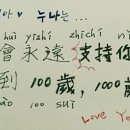 누나는...
huì yǒng zhīchí nǐ
會永遠支持你
到 100歲, 1000歲
dào 100 suì
Love Yo